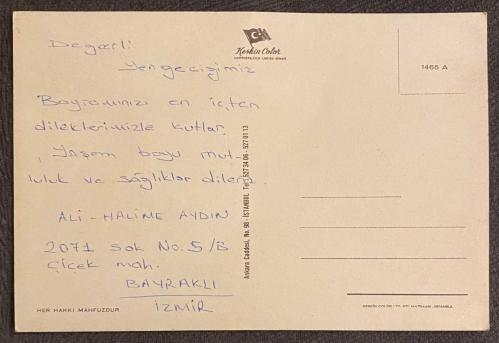 Değerli
Yengeciğimiz
Bayramınızı en içten
dileklerimizle kutlar,
Yaşam boyu mut-
luluk ve sağlıklar dileriz.
ALİ - HALİME AYDIN
2071 sok No. 5/B
Çiçek mah.
BAYRAKLI
İZMİR
HER HAKKI MAHFUZDUR
Keskin Color
Ankara Caddesi, No. 98 - İSTANBUL Tel: 527 34 06 - 527 01 13
1465 A
KESKİN COLOR